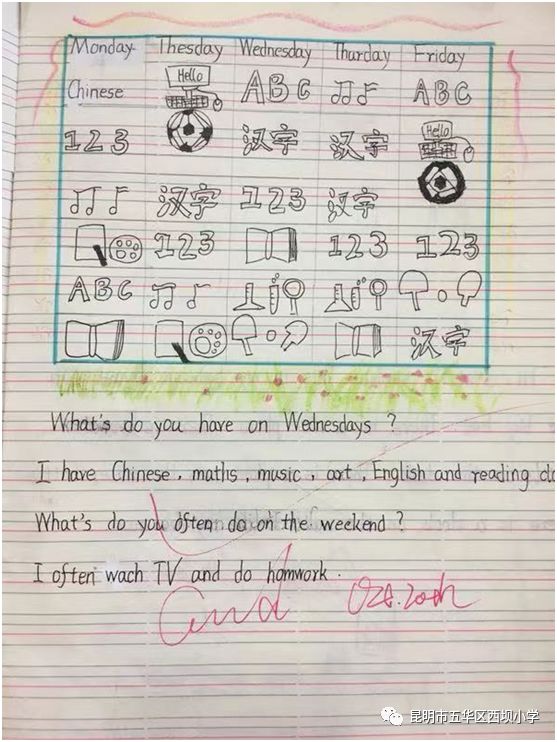 Monday Thesday Wednesday Thurday Friday
Chinese Hello ABC ABC
123 汉字 汉字 Hello
汉字 123 汉字
123 123 123
ABC
汉字
What's do you have on Wednesdays ?
I have Chinese , maths , music , art , English and reading
What's do you often do on the weekend ?
I often wach TV and do homwork .
昆明市五华区西坝小学